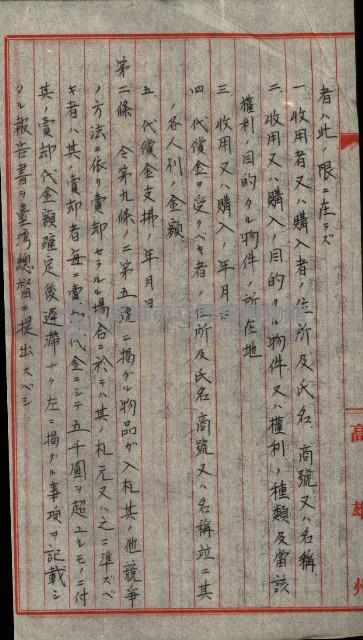 者ハ此ノ限ニ在ラズ
一、收用者又ハ購入者ノ住所及氏名、商號又ハ名稱
二、收用又ハ購入ノ目的タル物件又ハ權利ノ種類及當該
權利ノ目的タル物件ノ所在地
三、收用又ハ購入ノ年月日
四、代償金ヲ受クベキ者ノ住所及氏名、商號又ハ名稱竝ニ其
ノ各人別ノ金額
五、代償金支拂ノ年月日
第二條 令第九條ニ第五號ニ揭グル物品ガ入札其ノ他競爭
ノ方法ニ依リ賣却セラルル場合ニ於テハ其ノ札元又ハ之ニ準ズベ
キ者ハ其ノ賣却者每ニ賣却代金ニシテ五千圓ヲ超ユルモノニ付
其ノ賣却代金額確定後遲滯ナク左ニ揭グル事項ヲ記載シ
タル報告書ヲ臺灣總督ニ提出スベシ
高雄州